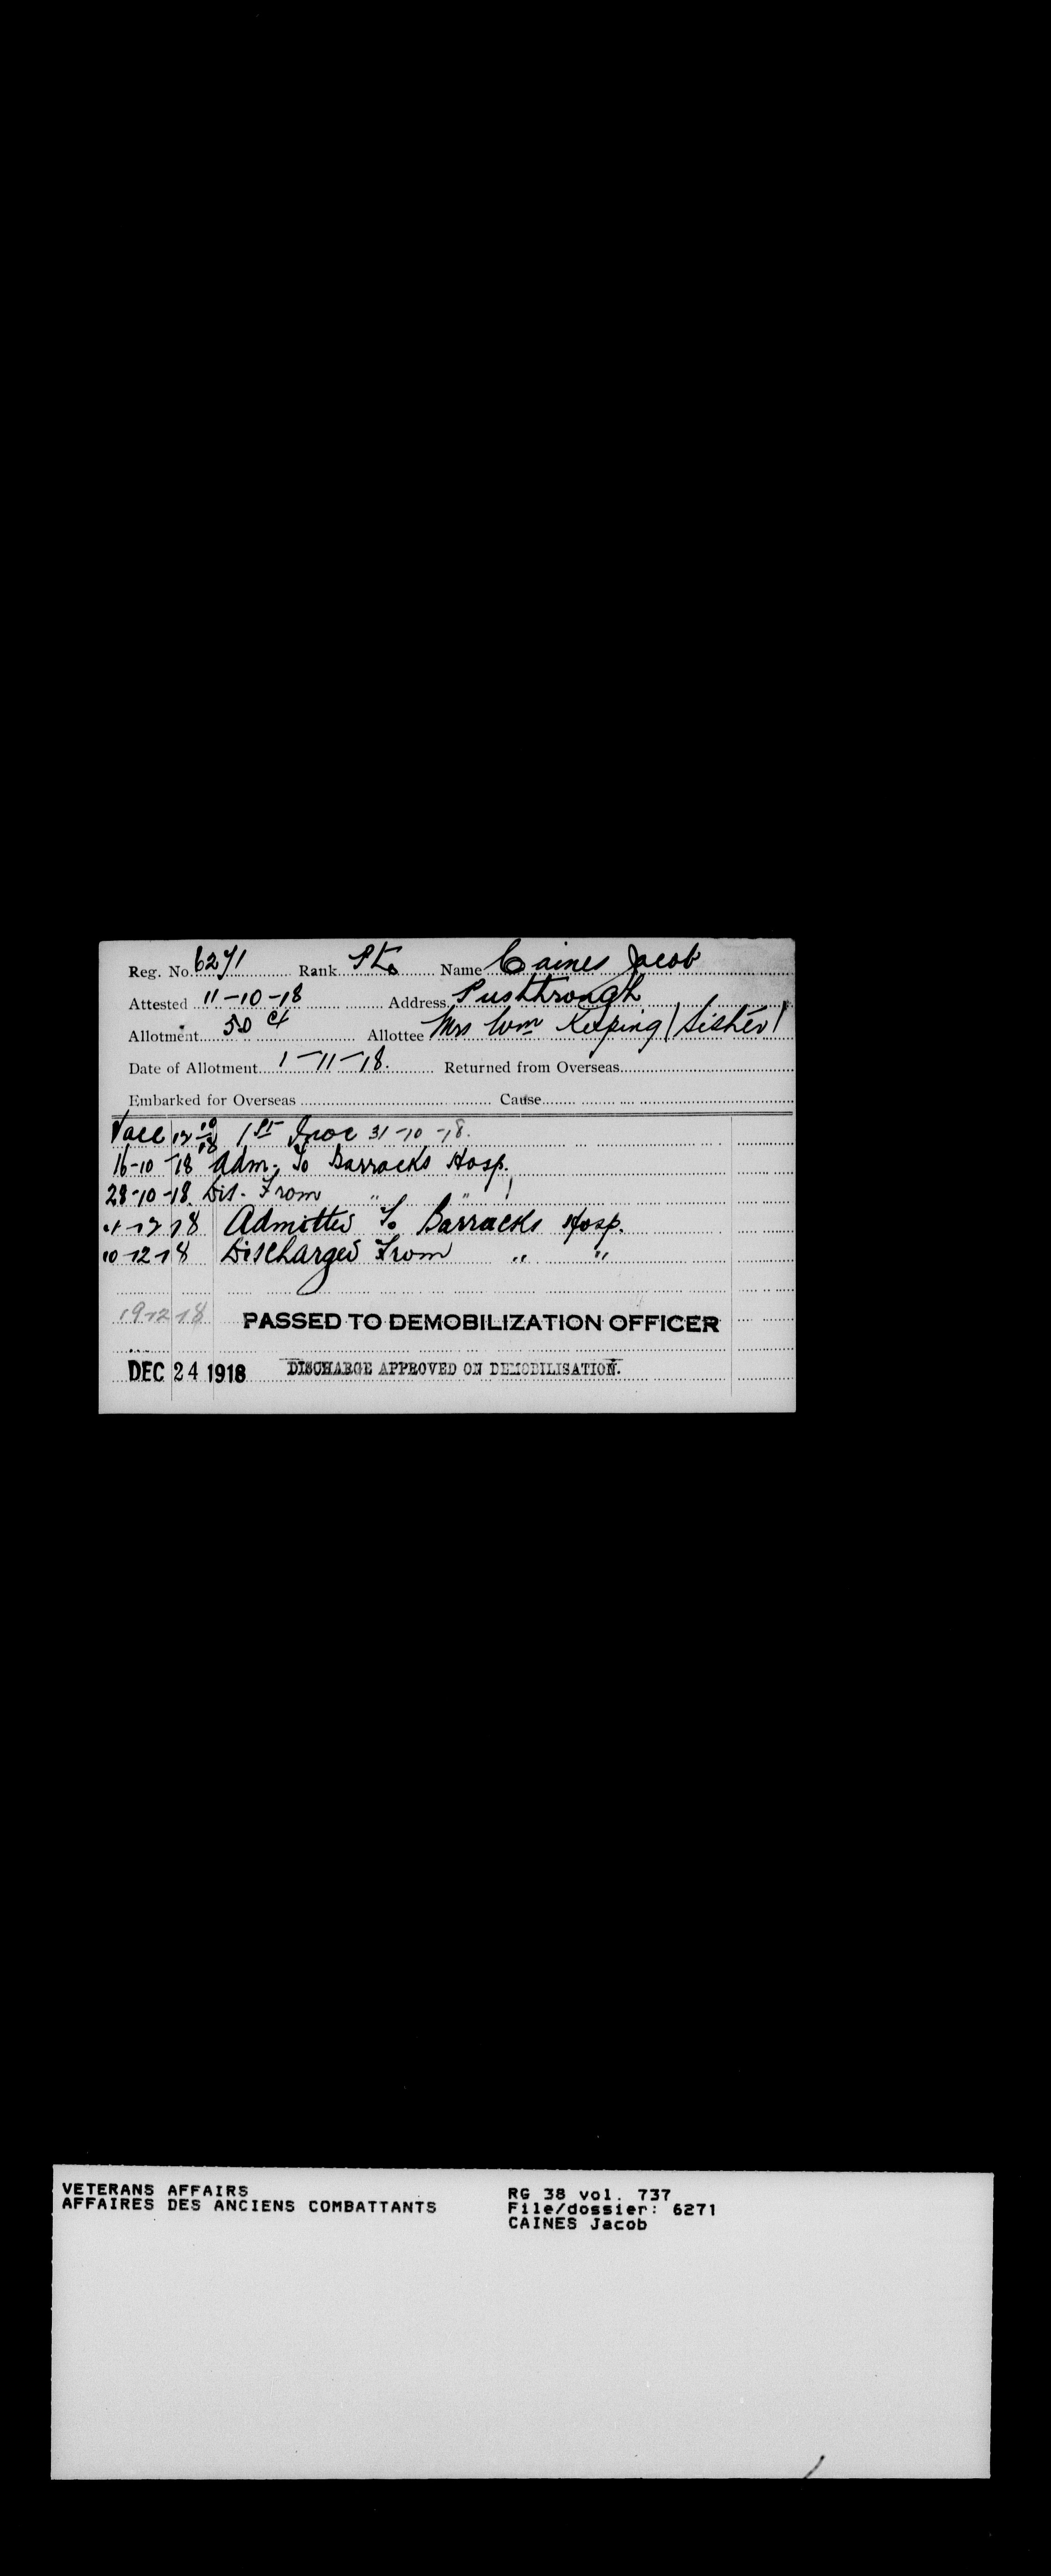 Reg. No. 6271 Rank Pte Name Caines Jacob
Attested 11-10-18 Address Pushthrough
Allotment 50 ct Allottee Mrs Wm Keeping (Sister)
Date of Allotment 1-11-18. Returned from Overseas
Embarked for Overseas Cause
Vacc 12-10-18 1st Inoc 31-10-18.
16-10-18 Adm. To Barracks Hosp.
28-10-18. Dis. From " "
-12-18 Admitted To Barracks Hosp.
10-12-18 Discharged From " "
19-12-18 PASSED TO DEMOBILIZATION OFFICER
DEC 24 1918 DISCHARGE APPROVED ON DEMOBILISATION.
VETERANS AFFAIRS
AFFAIRES DES ANCIENS COMBATTANTS
RG 38 vol. 737
File/dossier: 6271
CAINES Jacob